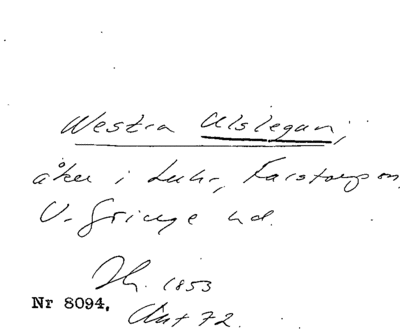 Westra Ulslegan,
åker i Luhr, Farstorps sn,
V. Göinge hd.
Jh. 1853
Nr 8094. Akt 72.